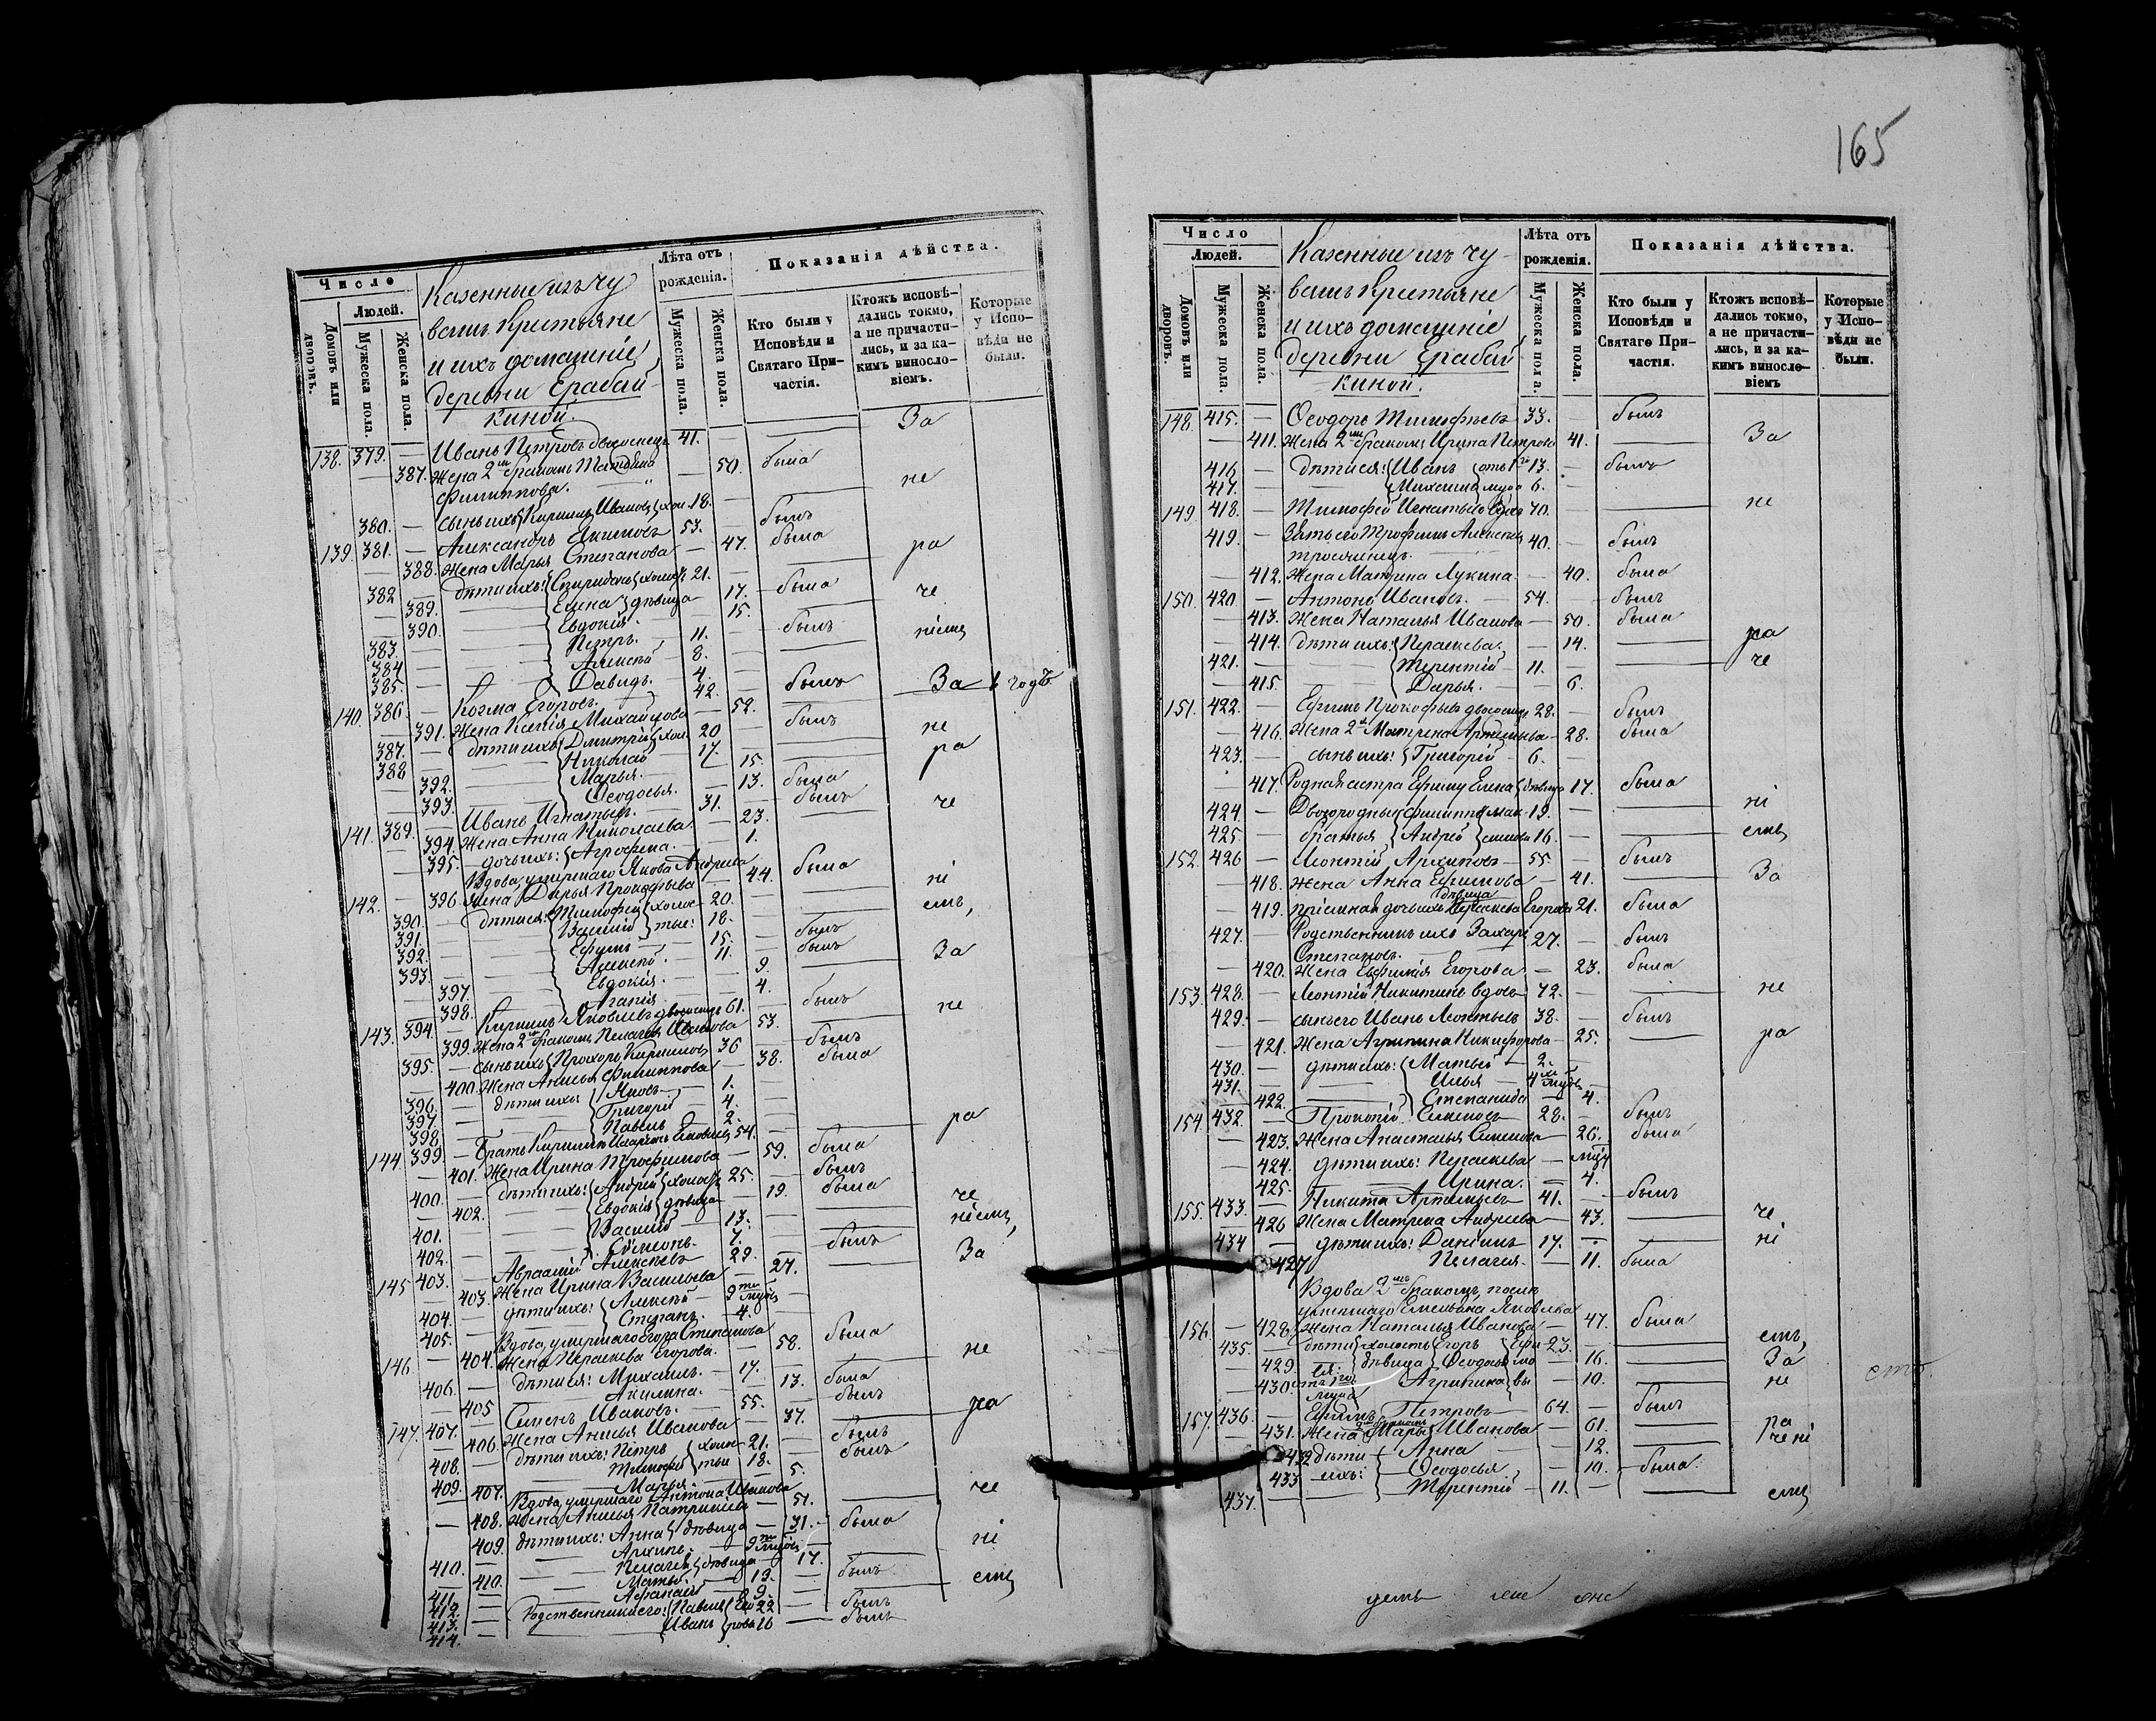 Число
Людей.
Домовъ или дворовъ.
Мужеска пола.
Женска пола.
Казенные изъ чу
вашъ крестьяне
и ихъ домашніе
деревни Ерабай-
киной.
Лѣта отъ рожденія.
Мужеска пола.
Женска пола.
Показанія дѣйства.
Кто были у Исповѣди и Святаго Причастія.
Ктожъ исповѣдались токмо, а не причастились, и за какимъ винословіемъ.
Которые у Исповѣди не были.
За
138. 379. — Иванъ Петровъ двоеженецъ 41. —
— 387. Жена 2мъ бракомъ Матрена — 50. была
Филиппова. не
380. — сынъ ихъ Кирилъ Ивановъ хол. 18. —
139. 381. — Александръ Акимовъ 53. былъ
— 388. Жена Марья Степанова — 47. была ра
382 — дѣти ихъ: Спиридонъ холост 21. —
389. Елена дѣвица — 17. была че
— 390. Евдокія. — 15.
383. — Петръ. 11. — былъ ніемъ
384 — Алексѣй 8. —
385. — Давидъ. 4. —
140. 386 — Козма Егоровъ. 42. — былъ За 1 годъ
— 391. Жена Ксенія Михайлова — 52.
387. — дѣти ихъ Дмитрій хол. 20 — былъ не
388 — Николай 17. — ра
392. Марья. — 15.
— 393. Ѳеодосья. — 13. была
141. 389. — Иванъ Игнатьевъ. 31. — былъ че
— 394. Жена Анна Николаева. — 23.
— 395. дочь ихъ: Агрофена. — 1.
Вдова, умершаго Якова Андреева
142. — 396 жена Дарья Прокофьева — 44. была ні
390. — дѣти ея: Тимофей холос- 20. — емъ,
391. — Василій тые: 18. —
392. — Ефимъ 15. — былъ
393 — Алексѣй. 11. — былъ За
397. Евдокія. — 9.
— 398. Агапія. — 4.
143. 394. — Кирилъ Яковлевъ двоеженецъ 61. — былъ не
399. Жена 2мъ бракомъ Пелагея Иванова — 53.
395. — сынъ ихъ Прохоръ Кириловъ 36 — былъ
— 400. Жена Анисья Филиппова — 38. была
396. — дѣти ихъ Яковъ 1. —
397. — Григорій 4. —
398. — Павелъ 2. — ра
144. 399 — Братъ Кириллы Иларіонъ Яковлевъ 54. —
— 401. Жена Ирина Трофимова — 59. была
400. — дѣти ихъ: Андрей холост 25. — былъ
— 402. Евдокія дѣвица — 19. была че
401. — Василій 13. — ніемъ,
402. — Симеонъ. 7. —
145 403. — Авраамій Алексѣевъ 29. — былъ За
— 403. Жена Ирина Васильева — 27.
404. — дѣти ихъ: Алексѣй 9ти мѣсяц —
405. — Степанъ. 4. —
Вдова, умершаго Егора Степанова
146. — 404. Жена Параскева Егорова. — 58. была не
406. — дѣти ея: Михаилъ. 17. —
— 405 Акилина. — 13. была
147. 407. — Семенъ Ивановъ. 55. — былъ ра
— 406. Жена Анисья Иванова — 37.
408. — дѣти ихъ: Петръ холос- 21. — былъ
409. — Тимофей тые 18. — былъ
407. Марья. — 5.
Вдова, умершаго Антона Иванова че
— 408. Жена Анисья Патрикеева — 51.
409. дѣти ихъ: Анна дѣвица — 31. была
410. — Архипъ. 9ти мѣсяц — ні
410. Пелагея дѣвица — 17.
411 — Матвѣй. 13. — былъ
412. — Афанасій 9. — емъ
413. — Родственники его: Павелъ Его 22 — былъ
414. — Иванъ ровы 16 — былъ
165
Число
Людей.
Домовъ или дворовъ.
Мужеска пола.
Женска пола.
Казенные изъ чу-
вашъ крестьяне
и ихъ домашніе
деревни Ерабай-
киной.
Лѣта отъ рожденія.
Мужеска пола.
Женска пола.
Показанія дѣйства.
Кто были у Исповѣди и Святаго Причастія.
Ктожъ исповѣдались токмо, а не причастились, и за какимъ винословіемъ
Которые у Исповѣди не были.
148. 415. — Ѳеодоръ Тимофѣевъ 33. — былъ
— 411. Жена 2мъ бракомъ Ирина Петрова 41. — За
416 — дѣти ея: Иванъ отъ 1го 13. — былъ
417. — Михаила мужа 6. —
149. 418. — Тимофей Игнатьевъ вдовъ 70. — не
419. — Зять его Трофимъ Алексѣевъ 40. — былъ
троеженецъ.
— 412. Жена Матрена Лукина — 40. была
150. 420 — Антонъ Ивановъ. 54. — былъ
— 413. Жена Наталья Иванова — 50. была
— 414. дѣти ихъ: Параскева. — 14. ра
421. — Терентій 11. — че
— 415. Дарья. — 6.
151. 422. — Ефимъ Прокофьевъ двоеженецъ 28. — былъ
— 416. Жена 2я Матрена Артемьева — 28. была
423. — сынъ ихъ: Григорій 6. —
— 417. Родная сестра Ефиму Елена дѣвица 17. была
424. — Двоюродные Филиппъ Мак- 19. ні
425. — братья Андрей симовы 16. — емъ
152. 426 — Леонтій Архиповъ 55. — былъ
— 418. жена Анна Ефимова — 41. За
дѣвица
— 419. пріемная дочь ихъ Параскева Егорова 21. была
427. — Родственникъ ихъ Захаръ 27. — былъ
Степановъ.
— 420. Жена Евфимія Егорова — 23. была
153. 428. — Леонтій Никитинъ вдовъ 72. — не
429. — сынъ его Иванъ Леонтьевъ 38. — былъ
— 421. Жена Агрипина Никифорова — 25. ра
430. — дѣти ихъ: Матвѣй 2. —
431. — Илья 4хъ мѣсяц —
— 422. Степанида — 4.
154. 432. — Прокопій Семеновъ 28. — былъ
— 423. Жена Анастасья Семенова — 26. была
— 424. дѣти ихъ: Параскева — мѣсяц
425. Ирина. — 4.
155. 433. — Никита Артемьевъ 41. — былъ
— 426 Жена Матрена Андреева — 43. че
434 — дѣти ихъ: Даніилъ 17. — ні
427 Пелагея. — 11. была
Вдова 2мъ бракомъ, послѣ
умершаго Емельяна Яковлева
156. — 428. Жена Наталья Иванова — 47. была
435. — дѣти холостъ Егоръ Ефи- 23. — емъ,
— 429 ея: дѣвица Ѳеодосья мо — 16. За
— 430. отъ 1го Агрипина вы — 10. не
мужа
157. 436. — Ефимъ Петровъ 64. — былъ
2мъ бракомъ
— 431. Жена Марья Иванова — 61. ра
432 дѣти Анна — 12. че ні
433 ихъ: Ѳеодосья — 10. была.
437. — Терентій 11. — емъ